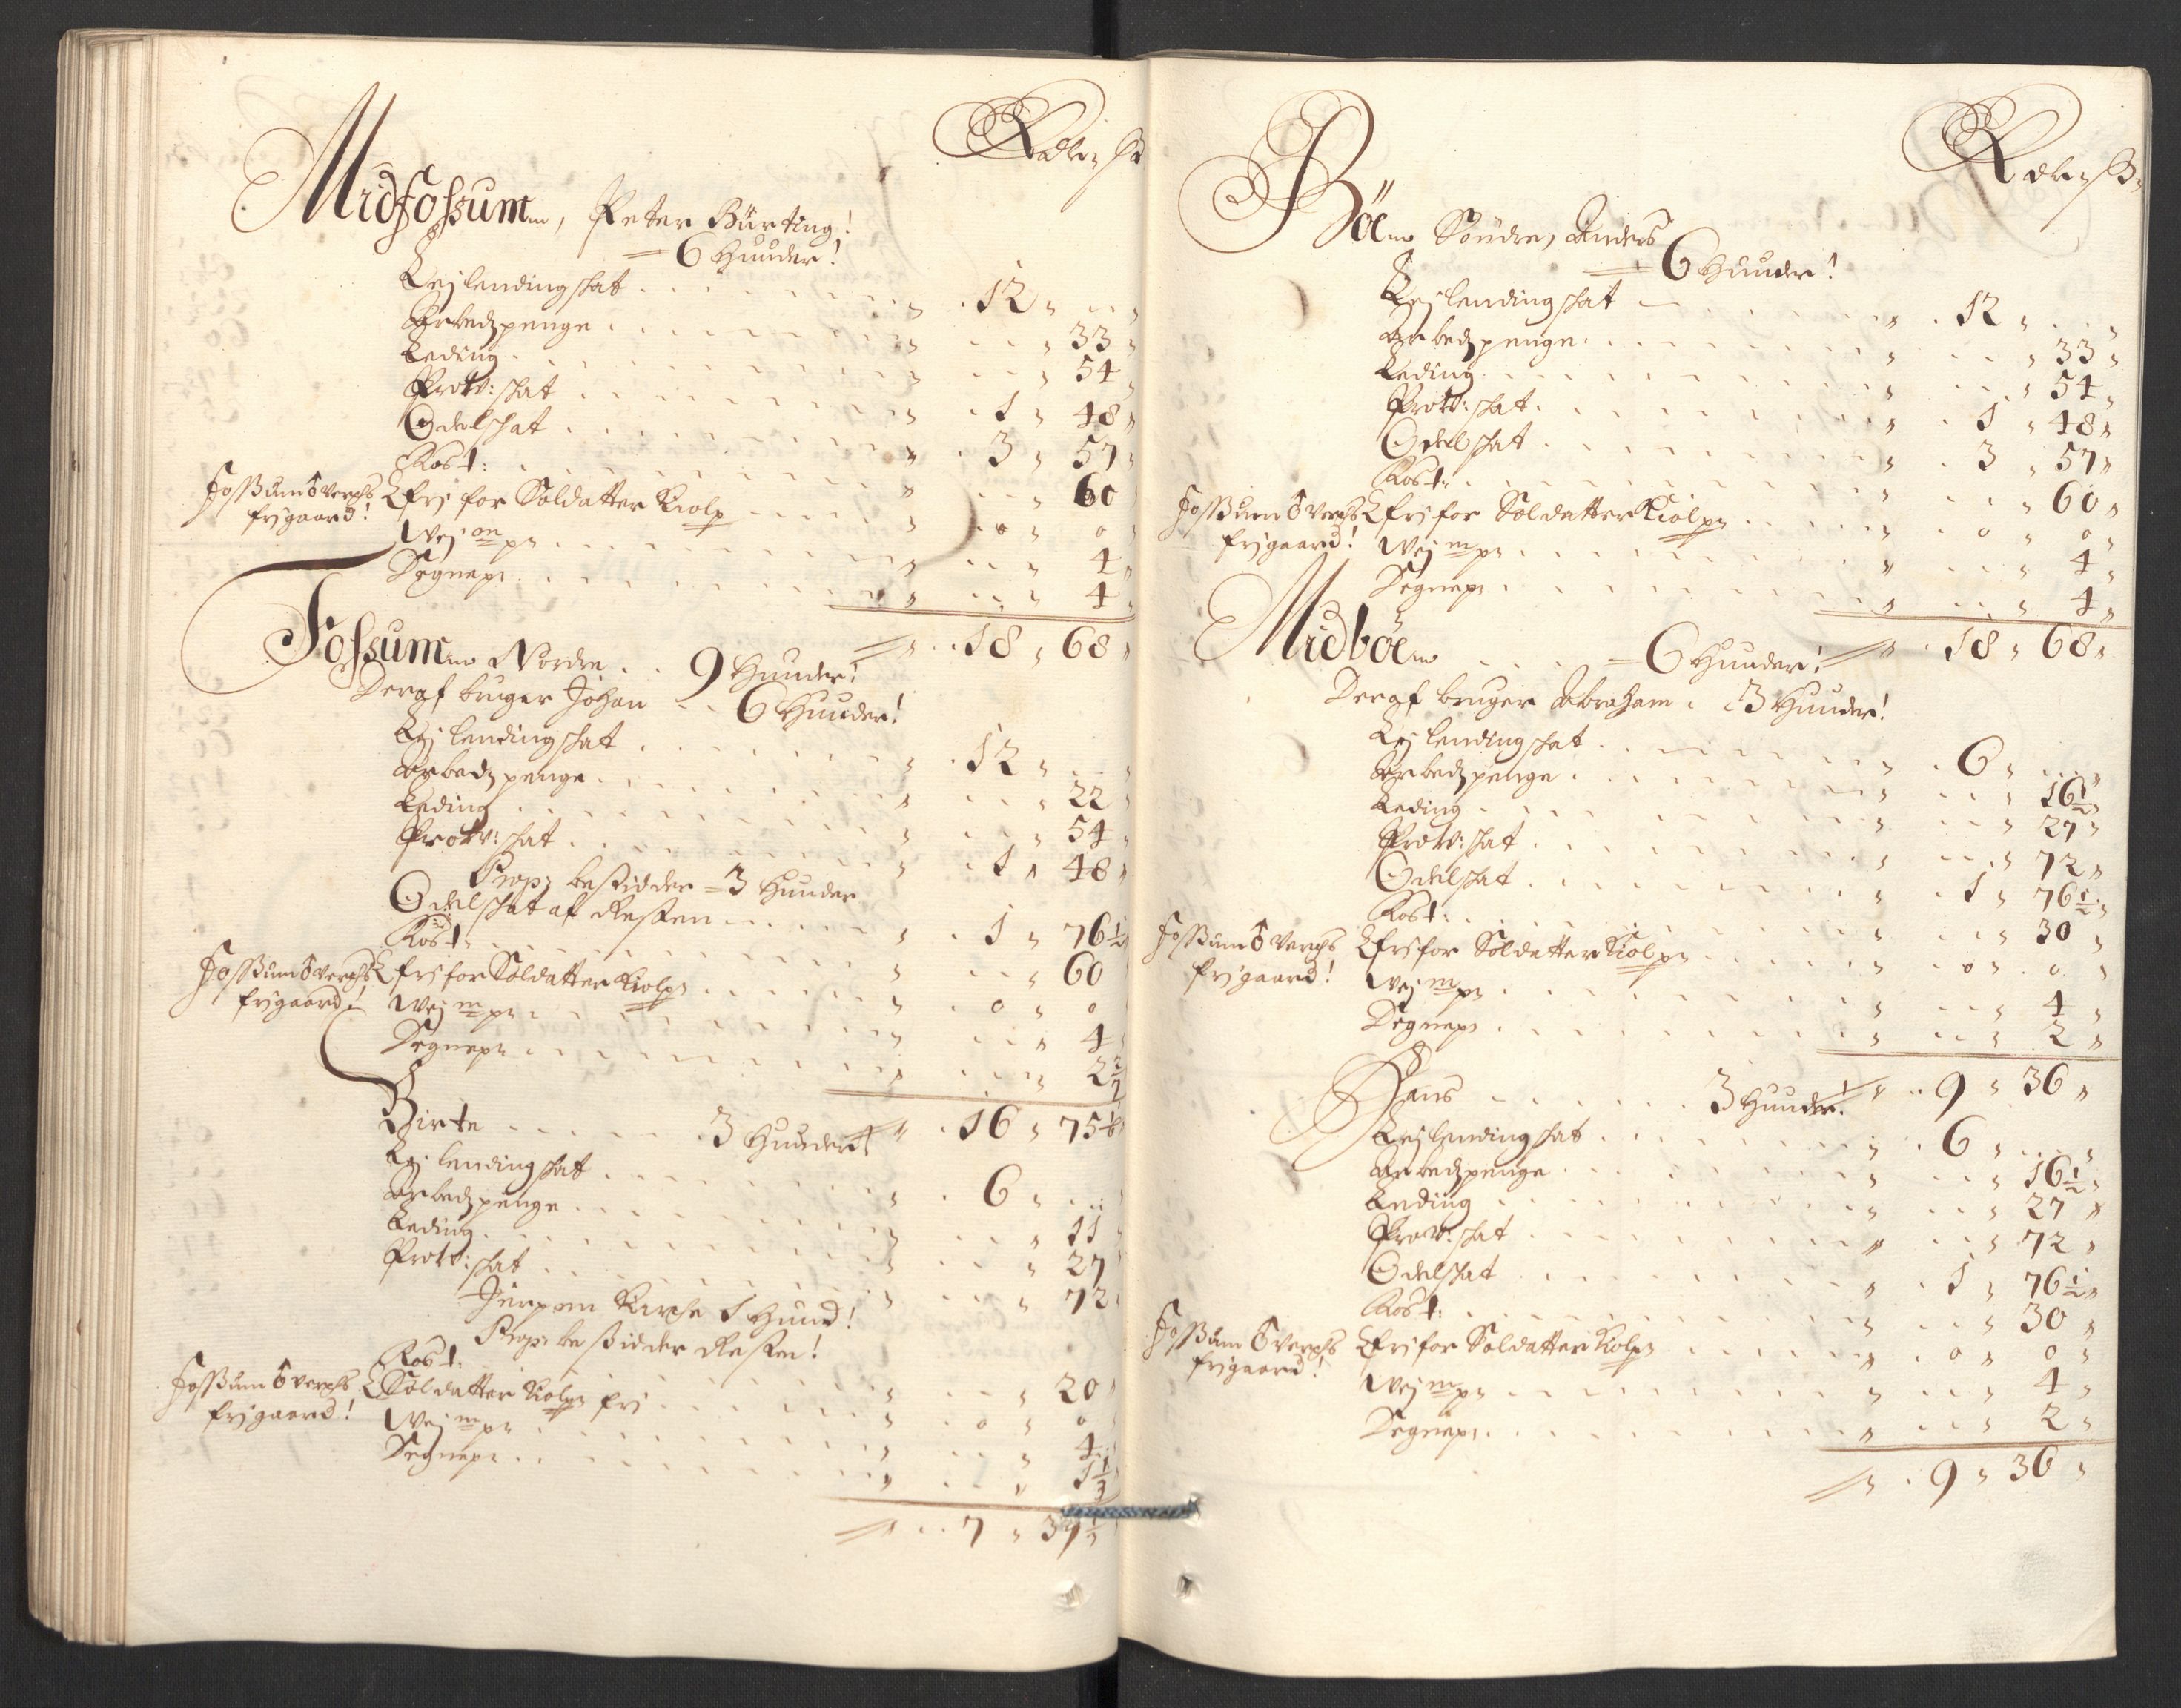 Rdlr ß
Midfossum, Peter Bürting!
= 6 Hunder!
Leylendingskat " 12 " ..
Arbedzpenge " .. " 33 "
Leding " .. " 54 "
Prow: skat " 1 " 48 "
Odelskat " 3 " 57 "
Rost: " .. " 60
Foßum Verchs frygaard! Er fri for Soldatter Kiolp " 0 " 0
Wej mp " .. " 4 "
Degnep " .. " 4 "
" 18 " 68 "
Fossum Nordre .. 9 Hunder!
Deraf bruger Johan .. 6 Hunder!
Leylendingskat " 12 " ..
Arbedzpenge " .. " 22 "
Leding " .. " 54 "
Prow: skat " 1 " 48 "
Prop: besidder = 3 Hunder
Odelskat af Resten " 1 " 76½
Rost: " .. " 60
Foßum Verchs frygaard! Er fri for Soldatter Kiolp " 0 " 0
Wej mp " .. " 4 "
Degnep " .. " 2⅔
" 16 " 75⅙
Birte 3 Hunder!
Leylendingskat " 6 " ..
Arbedzpenge " .. " 11 "
Leding " .. " 27
Prow: skat " .. " 72
Jerpen Kirche 1 Hund!
Prop: besidder Resten!
Rost: " .. " 20 "
Foßum Verchs frygaard! Er Soldatter Kiolp fri " 0 " 0
Wej mp " .. " 4
Degnep " .. " 1⅓
" 7 " 39⅓
Rdlr ß
Böe Söndre, Anders
= 6 Hunder!
Leylendingskat " 12 " ..
Arbedzpenge " .. " 33 "
Leding " .. " 54 "
Prow: skat " 1 " 48 "
Odelskat " 3 " 57 "
Rost: " .. " 60 "
Foßum Verchs frygaard! Er fri for Soldatter Kiolp " 0 " 0
Wej mp " .. " 4 "
Degnep " .. " 4 "
" 18 " 68 "
Midböe = 6 Hunder!
Deraf bruger Abraham 3 Hunder!
Leylendingskat " 6 " ..
Arbedzpenge " .. " 16½ "
Leding " .. " 27 "
Prow: skat " .. " 72 "
Odelskat " 1 " 76½ "
Rost: " .. " 30 "
Foßum Verchs frygaard! Er fri for Soldatter Kiolp " 0 " 0 "
Wej mp " .. " 4 "
Degnep " .. " 2 "
" 9 " 36 "
Hans 3 Hunder!
Leylendingskat " 6 " ..
Arbedzpenge " .. " 16½ "
Leding " .. " 27 "
Prow: skat " .. " 72 "
Odelskat " 1 " 76½ "
Rost: " .. " 30 "
Foßum Verchs frygaard! Er fri for Soldatter Kiolp " 0 " 0 "
Wej mp " .. " 4 "
Degnep " .. " 2 "
" 9 " 36 "